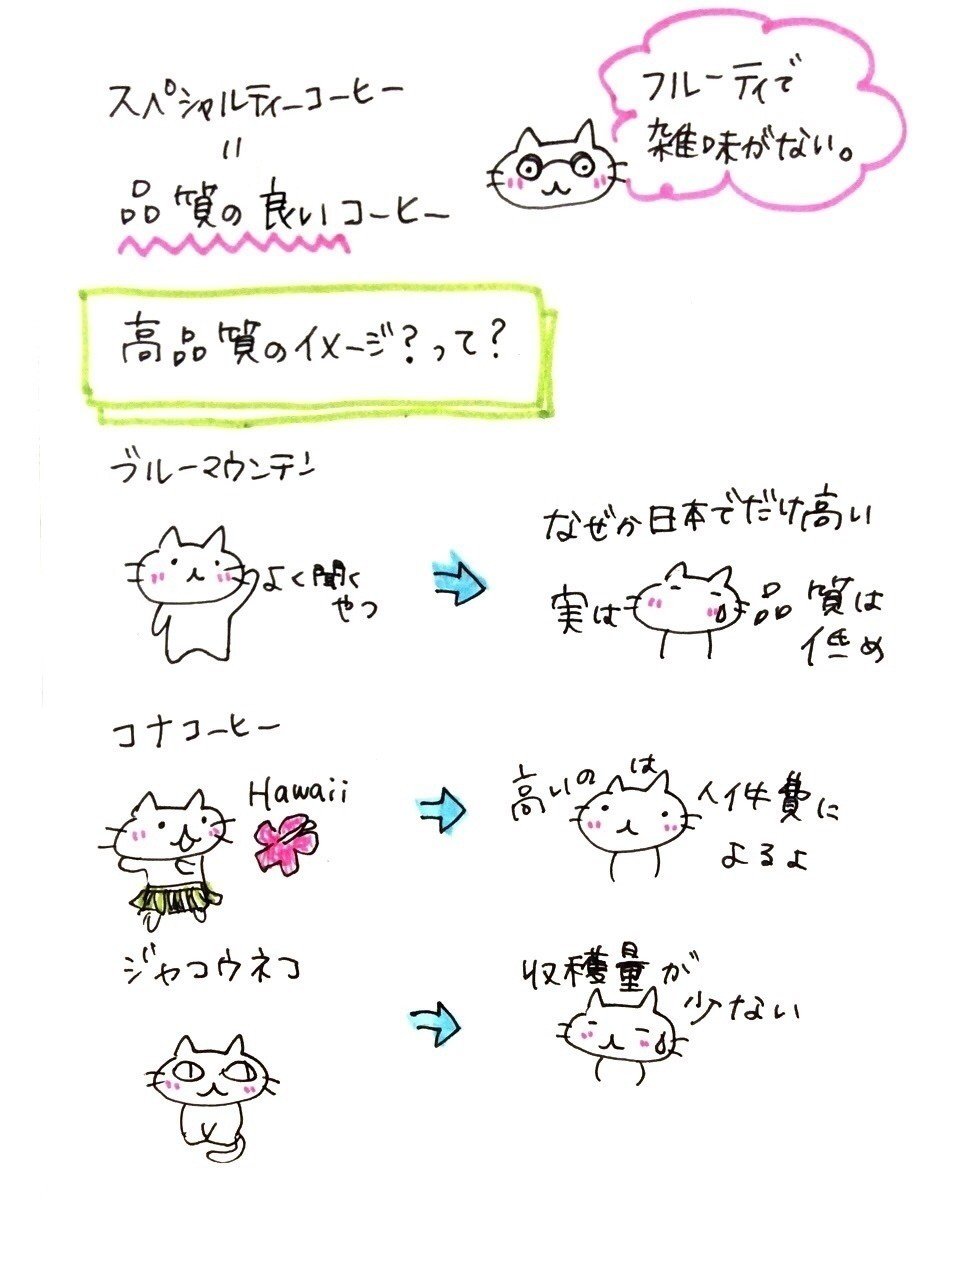 スペシャルティーコーヒー
=
品質の良いコーヒー
フルーティで
雑味がない。
高品質のイメージ?って?
ブルーマウンテン
よく聞く
やつ
なぜか日本でだけ高い
実は品質は
低め
コナコーヒー
Hawaii
高いのは人件費に
よるよ
ジャコウネコ
収穫量が
少ない